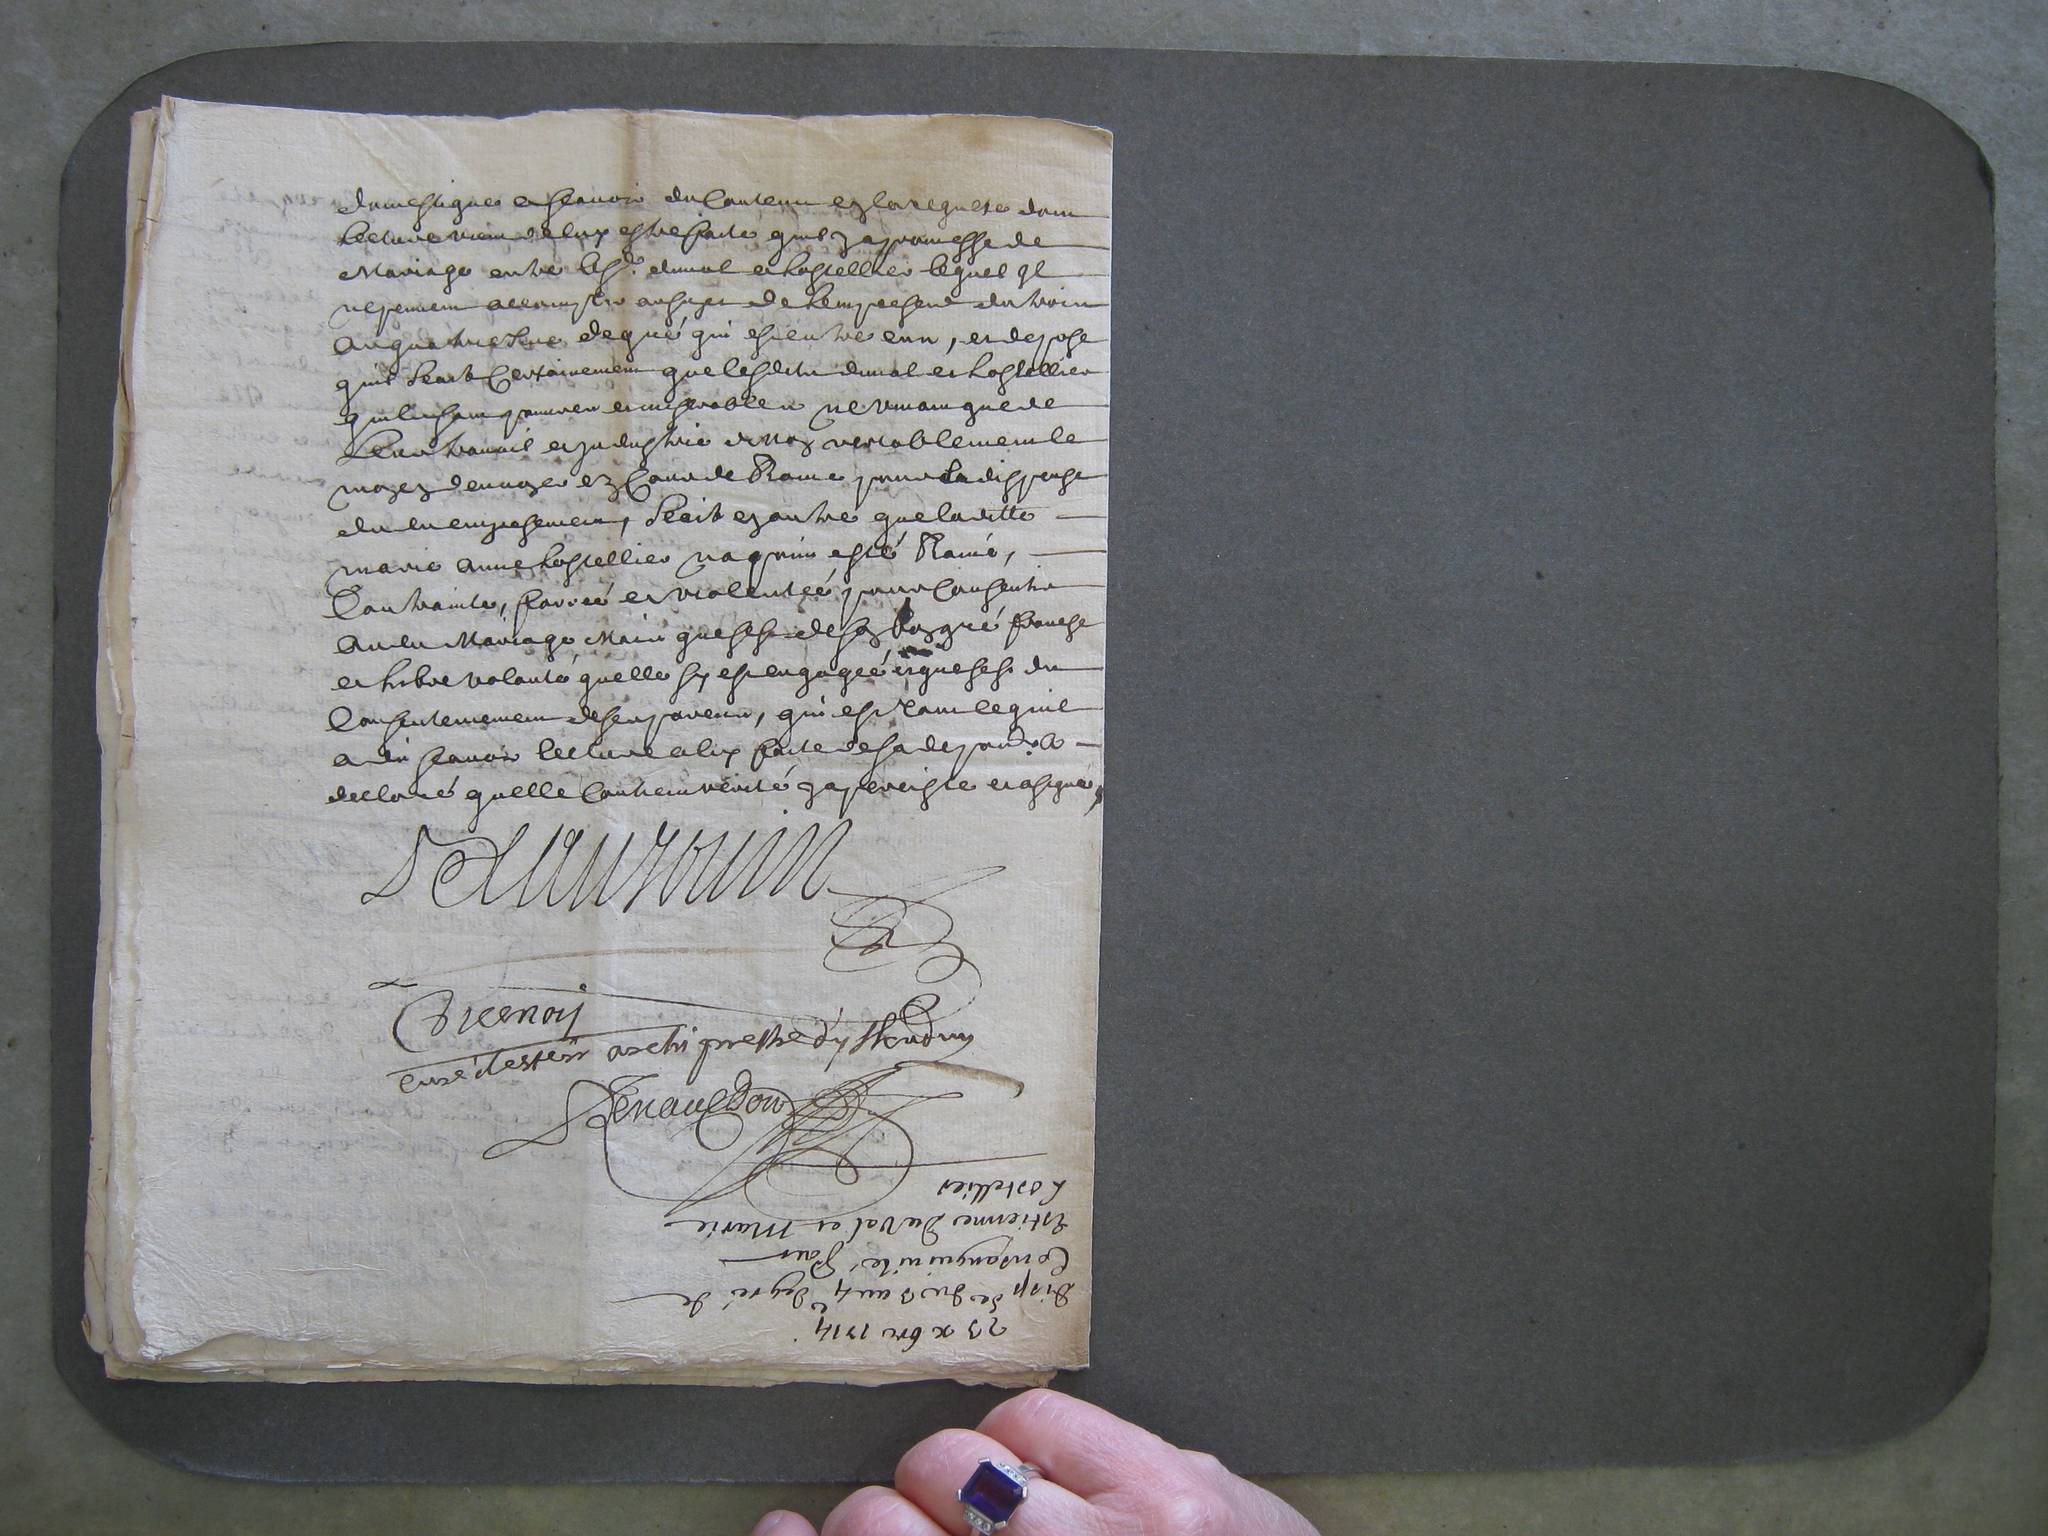 domestiques et scavoir du contenu en la requeste dont
lecture vient de luy estre faite quil y a promesse de
Mariage entre lesd. duval et hostellier lequel ils
ne peuvent accomplir au sujet de lempeschem. du trois
au quatriesme degré qui est entre eux, et depose
quil scait certainement que lesdits duval et hostellier
qui sont pauvres et miserables ne vivant que de
leur travail et industrie et nont veritablement le
moyen denvoyer en Cour de Rome pour la dispense
dud. empeschement, scait en outre que laditte
marie anne hostellier na point esté Ravie,
Contrainte, forcée et violentée pour consentir
aud. Mariage Mais que cest de son bon gré franche
et libre volonté quelle sy est engagée et que cest du
Consentement de ses parens, qui est tout ce quil
a dit scavoir lecture a luy faite de sa depon. a
declaré quelle contient vérité y a persisté et a signé
archiprestre
Renaudon
23 xbre 1714
Disp de du 3 au 4e degré de
Consanguinité pour
Estienne Duval et Marie
hostellier